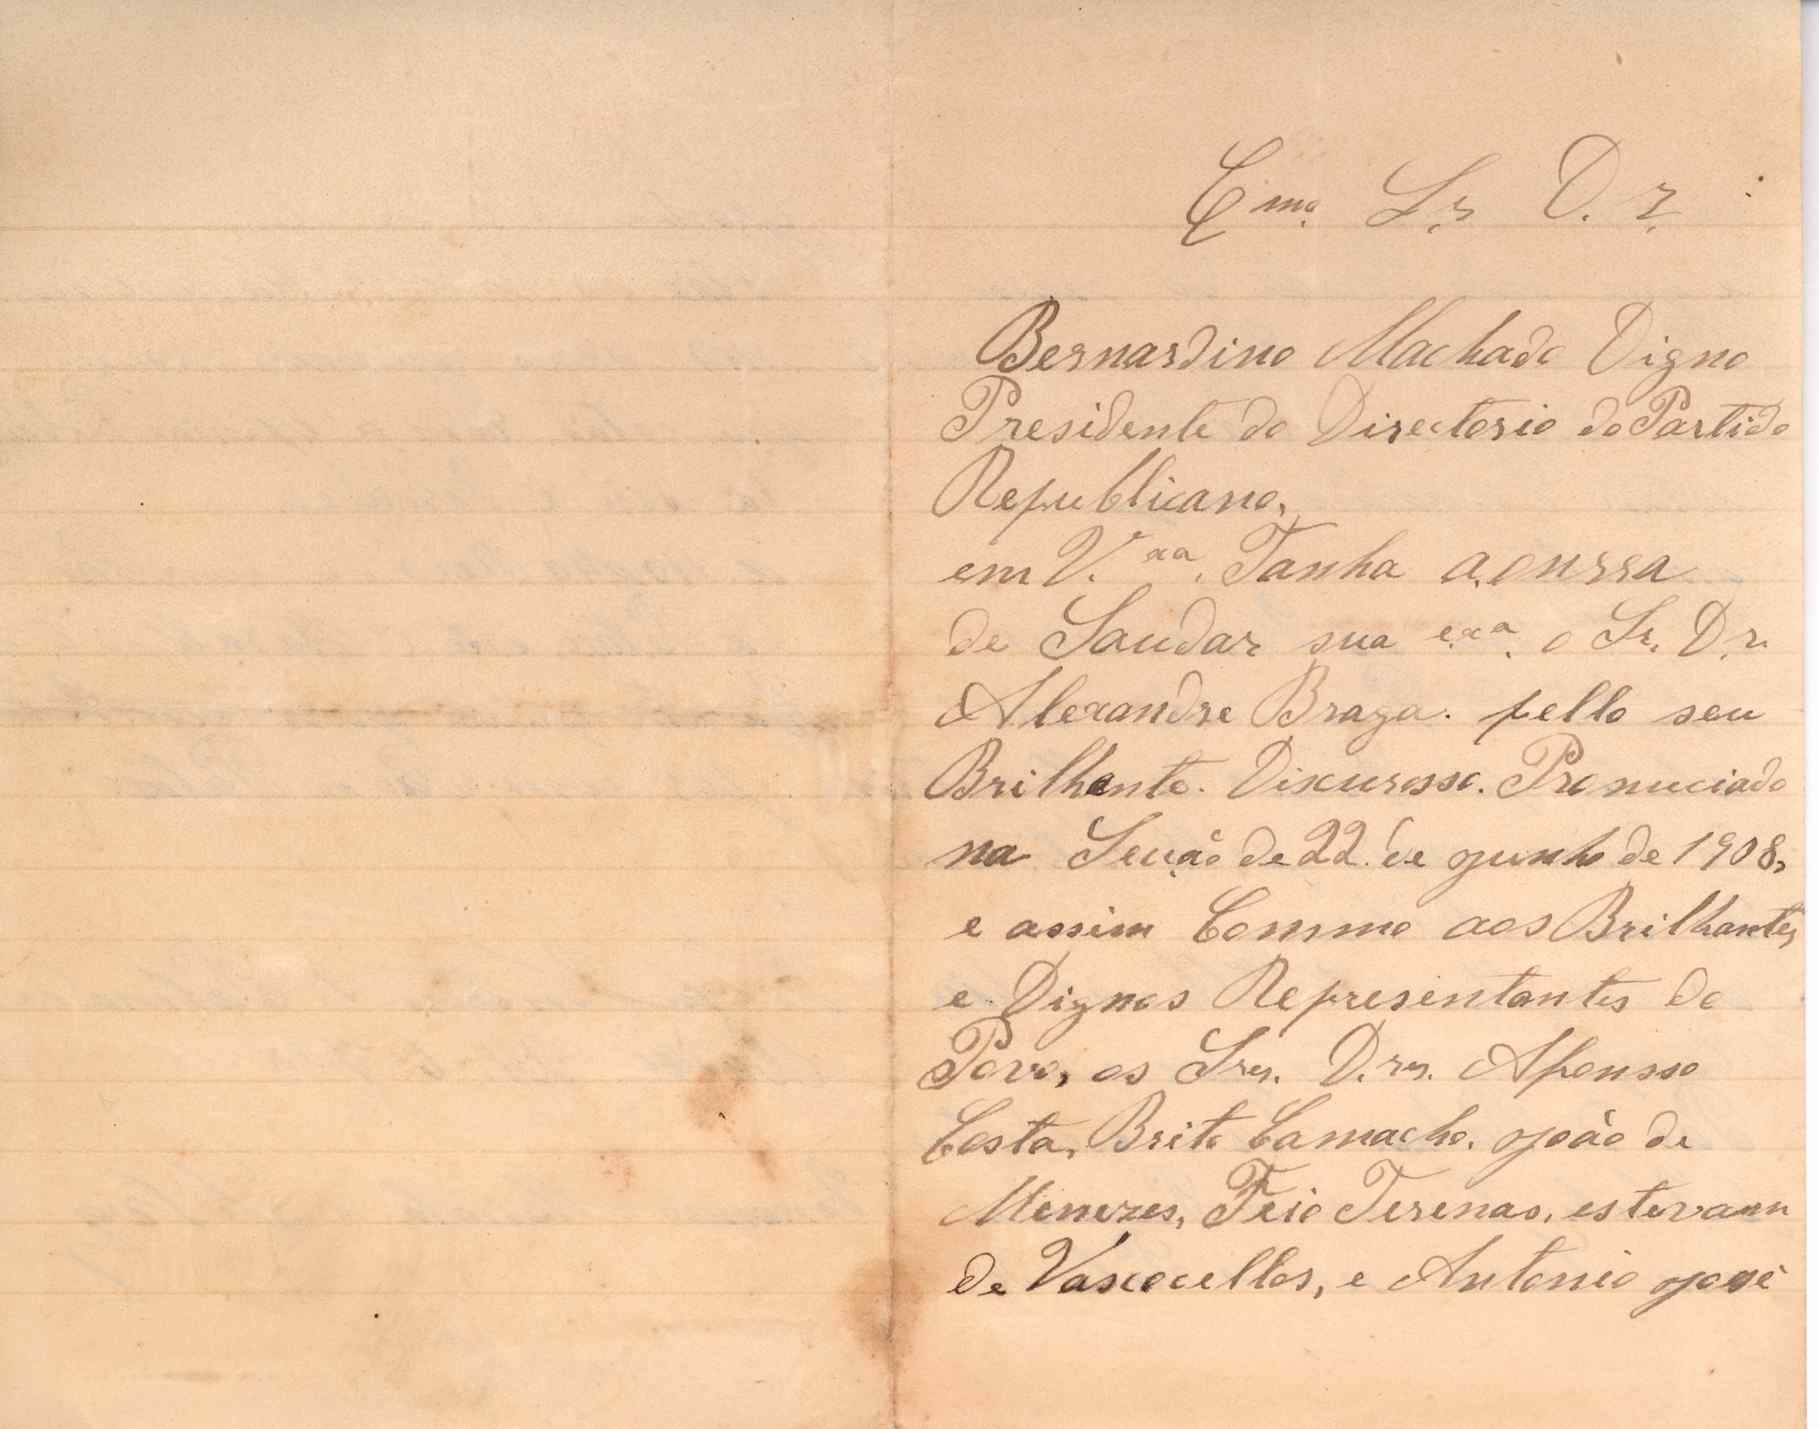 Emo. Sr. D.r.
Bernardino Machado Digno
Presidente do Directorio do Partido
Republicano,
em V. Exa. Tanha a onrra
de Saudar sua exa. o Sr. D.r.
Alexandre Braga. pello seu
Brilhante. Discursso. Pronuciado
na Secção de 22 de junho de 1908,
e assim Commo aos Brilhantes,
e Dignos Representantes do
Povo, os Srs. D.rs. Afonsso
Costa, Brito Camacho. João de
Menezes, Feio Terenao, estevam
de Vascocellos, e Antonio José